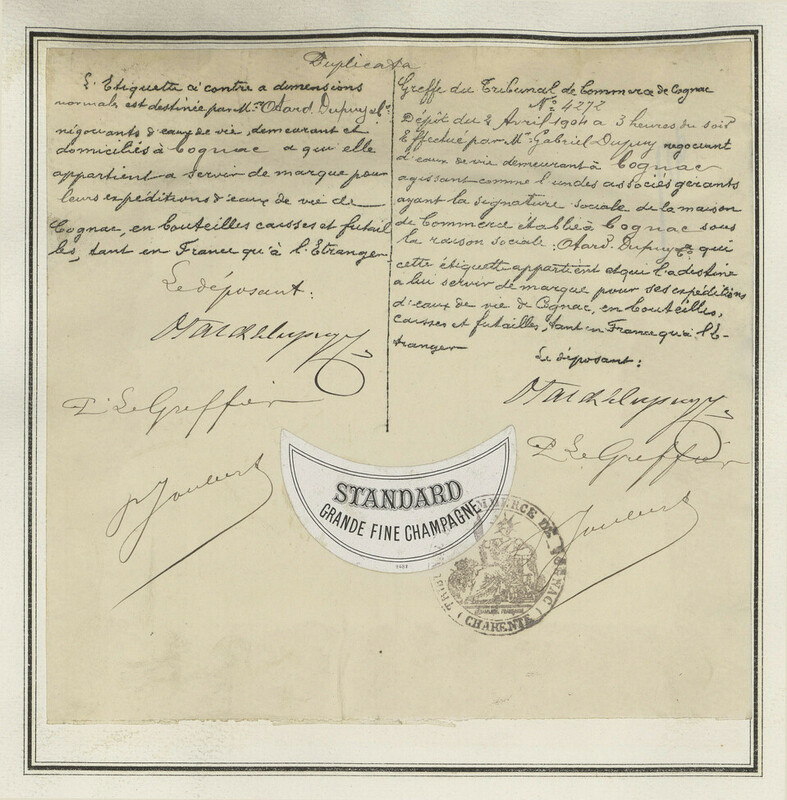 Duplicata
L'Etiquette ci contre a dimensions
normales est destinée par Mrs Otard Dupuy & Co
négociants d'eaux de vie, demeurant et
domiciliés à Cognac a qui elle
appartient a servir de marque pour
leurs expéditions d'eaux de vie de
Cognac, en bouteilles caisses et futail
les, tant en France qu'à l'Etranger.
Le déposant:
Otard Dupuy & Co
P. Le Greffier
P. Joubert
Greffe du Tribunal de Commerce de Cognac
No 4272
Dépôt du 2 Avril 1904 a 3 heures du soir
Effectué par Mr Gabriel Dupuy négociant
d'eaux de vie demeurant à Cognac
agissant comme l'un des associés gérants
ayant la signature sociale de la maison
de Commerce établie à Cognac sous
la raison sociale: Otard Dupuy & Co qui
cette étiquette appartient et qui l'a destine
a lui servir de marque pour ses expéditions
d'eaux de vie de Cognac, en bouteilles,
caisses et futailles, tant en France qu'à l'E-
tranger
Le déposant:
Otard Dupuy & Co
P. Le Greffier
Joubert
STANDARD
GRANDE FINE CHAMPAGNE
COMMERCE DE COGNAC
(CHARENTE)